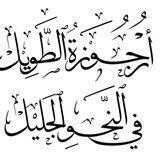 أرجوزة الطويل
في النحو الجليل